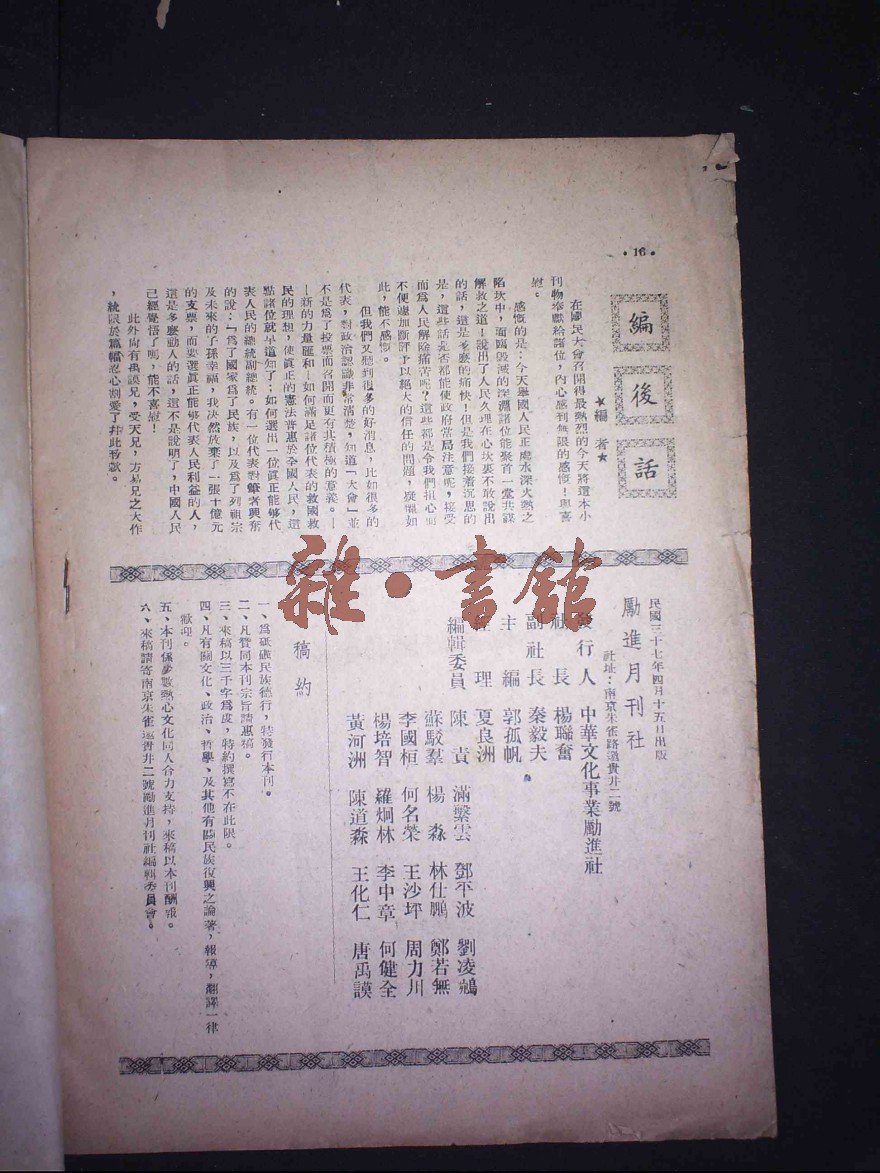 ·16·
編後話
★編者★
在國民大會召開得最熱烈的今天將這本小
刊物奉獻給諸位，內心感到無限的感慨！與喜
慰。
感慨的是：今天舉國人民正處水深火熱之
陷坎中，面臨毀滅的深淵諸位能聚首一堂共謀
解救之道！說出了人民久埋在心坎裏不敢說出
的話，這是多麼的痛快！但是我們接着沉思的
是，這些話是否都能使政府當局注意呢，接受
而爲人民解除痛苦呢？這些都是令我們担心而
不便遽加斷評予以絕大的信任的問題，疑懼如
此，能不感慨。
但我們又聽到很多的好消息，比如很多的
代表，對政治認識非常清楚，知道「大會」並
不是爲了投票而召開而更有其積極的意義。—
—新的力量匯和—如何滿足諸位代表的救國救
民的理想，使眞正的憲法普惠於全國人民，這
點諸位就早道知了；如何選出一位眞正能够代
表人民的總統副總統。有一位代表對筆者興奮
的說：「爲了國家爲了民族，以及爲了列祖宗
及未來的子孫幸福，我決然放棄了一張十億元
的支票，而要選眞正能够代表人民利益的人，
這是多麼動人的話，這不是說明了，中國人民
已經覺悟了嗎，能不喜慰！
此外尚有禹謨兄，受天兄，方易兄之大作
，統限於篇幅忍心割愛了并此致歉。
民國三十七年四月十五日出版
勵進月刊社
社址：南京朱雀路邀貴井二號
發行人 中華文化事業勵進社
社長 楊聯奮
副社長 秦毅夫
主編 郭孤帆
經理 夏良洲
編輯委員 陳責 滿繫雲 鄧平波 劉凌鵷
蘇駁羣 楊淼 林仕鵬 鄭若無
李國桓 何名榮 王沙坪 周力川
楊培智 羅炯林 李中章 何健全
黃河洲 陳道淼 王化仁 唐禹謨
稿約
一、爲砥礪民族德行，特發行本刊。
二、凡贊同本刊宗旨請惠稿。
三、來稿以三千字爲度，特約撰寫不在此限。
四、凡有關文化、政治、哲學、及其他有關民族復興之論著，報導，翻譯一律
歡迎。
五、本刊係參數熱心文化同人合力支持，來稿以本刊酬報。
六、來稿請寄南京朱雀路邀貴井二號勵進月刊社編輯委員會。
雜·書館